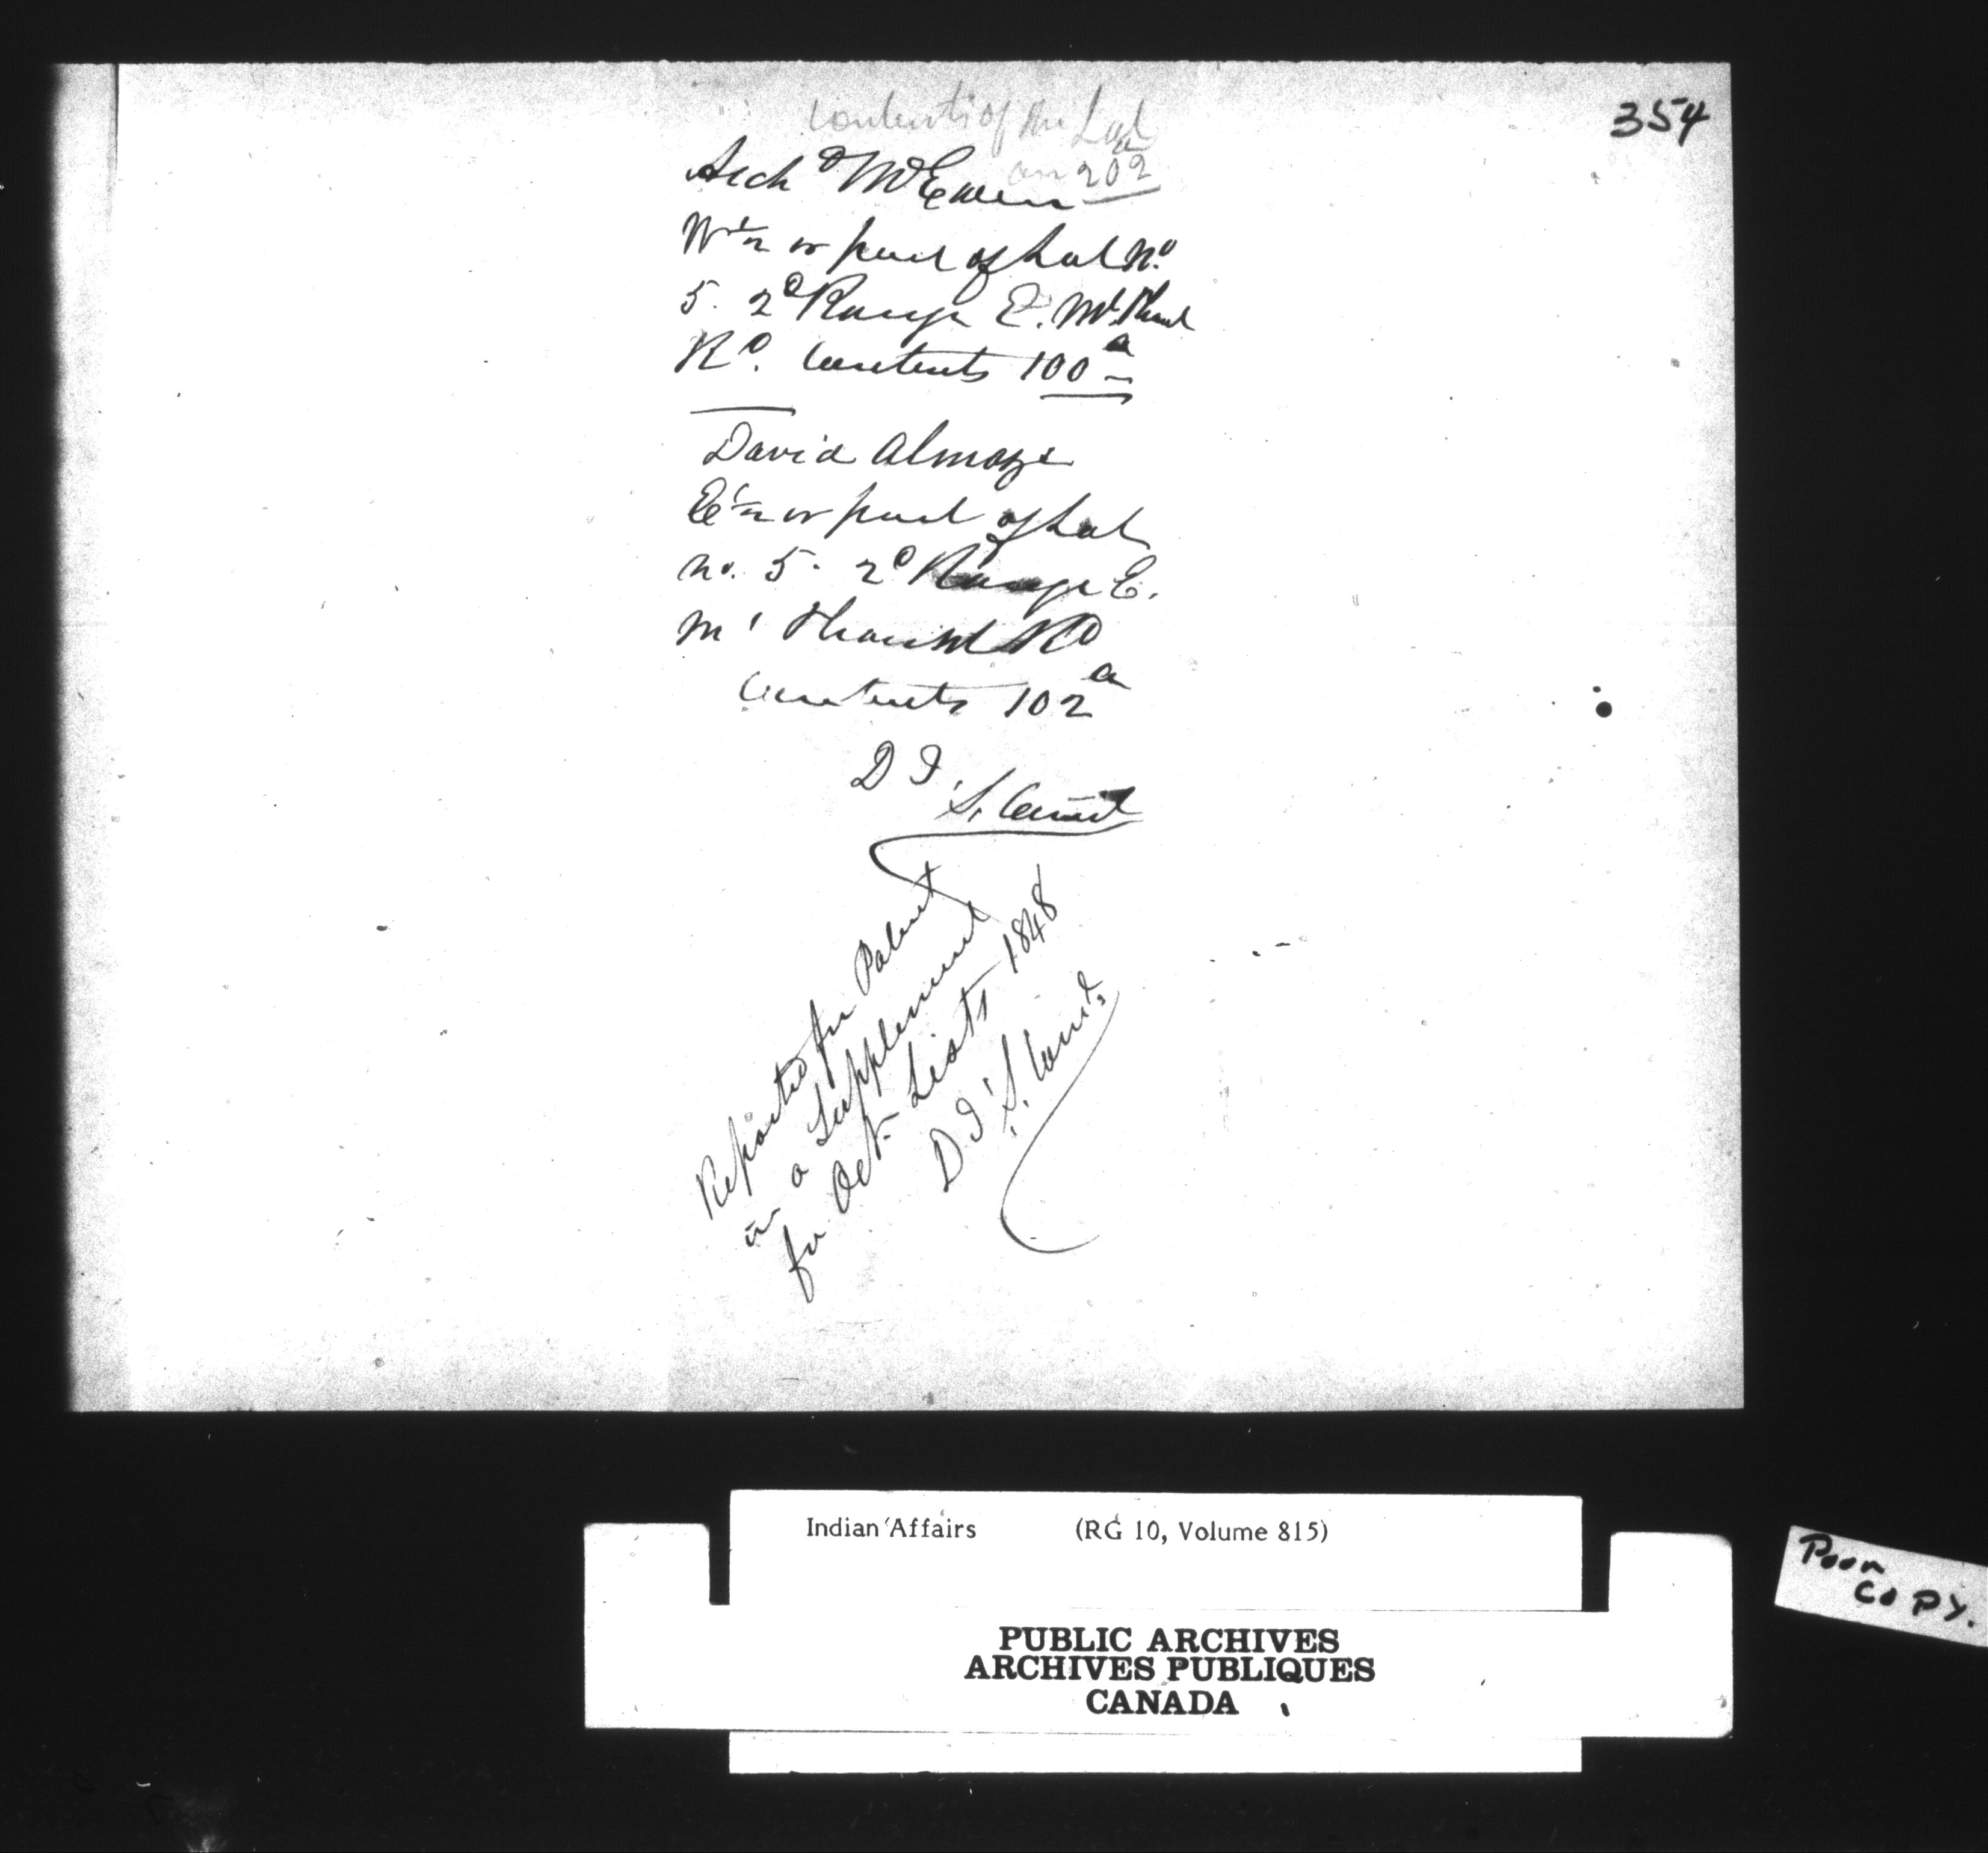 354
Contents of the Lot
are 202 a
Archd McEwen
W ½ or part of Lot No.
5. 2d Range E. Mt. Pleast
Rd. Contents 100 a
David Almoze
E ½ or part of Lot
No. 5. 2d Range E.
Mt Rd
Contents 102 a
D T
S.
Reported for Patent
in a Supplement
for Oct. Lists 1848
D T S.
Indian Affairs (RG 10, Volume 815)
PUBLIC ARCHIVES
ARCHIVES PUBLIQUES
CANADA
Poor
COPY.